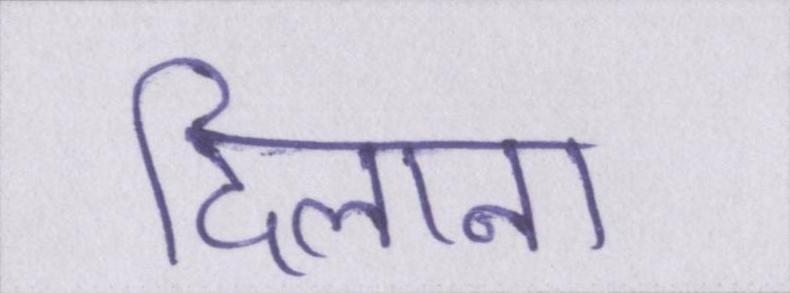 दिलाना